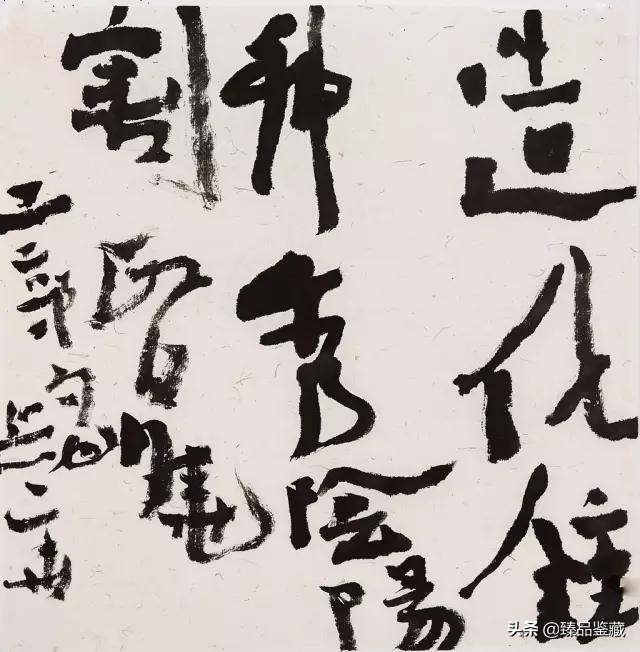 造化鍾
神秀陰陽
割昏曉
头条 @臻品鉴藏